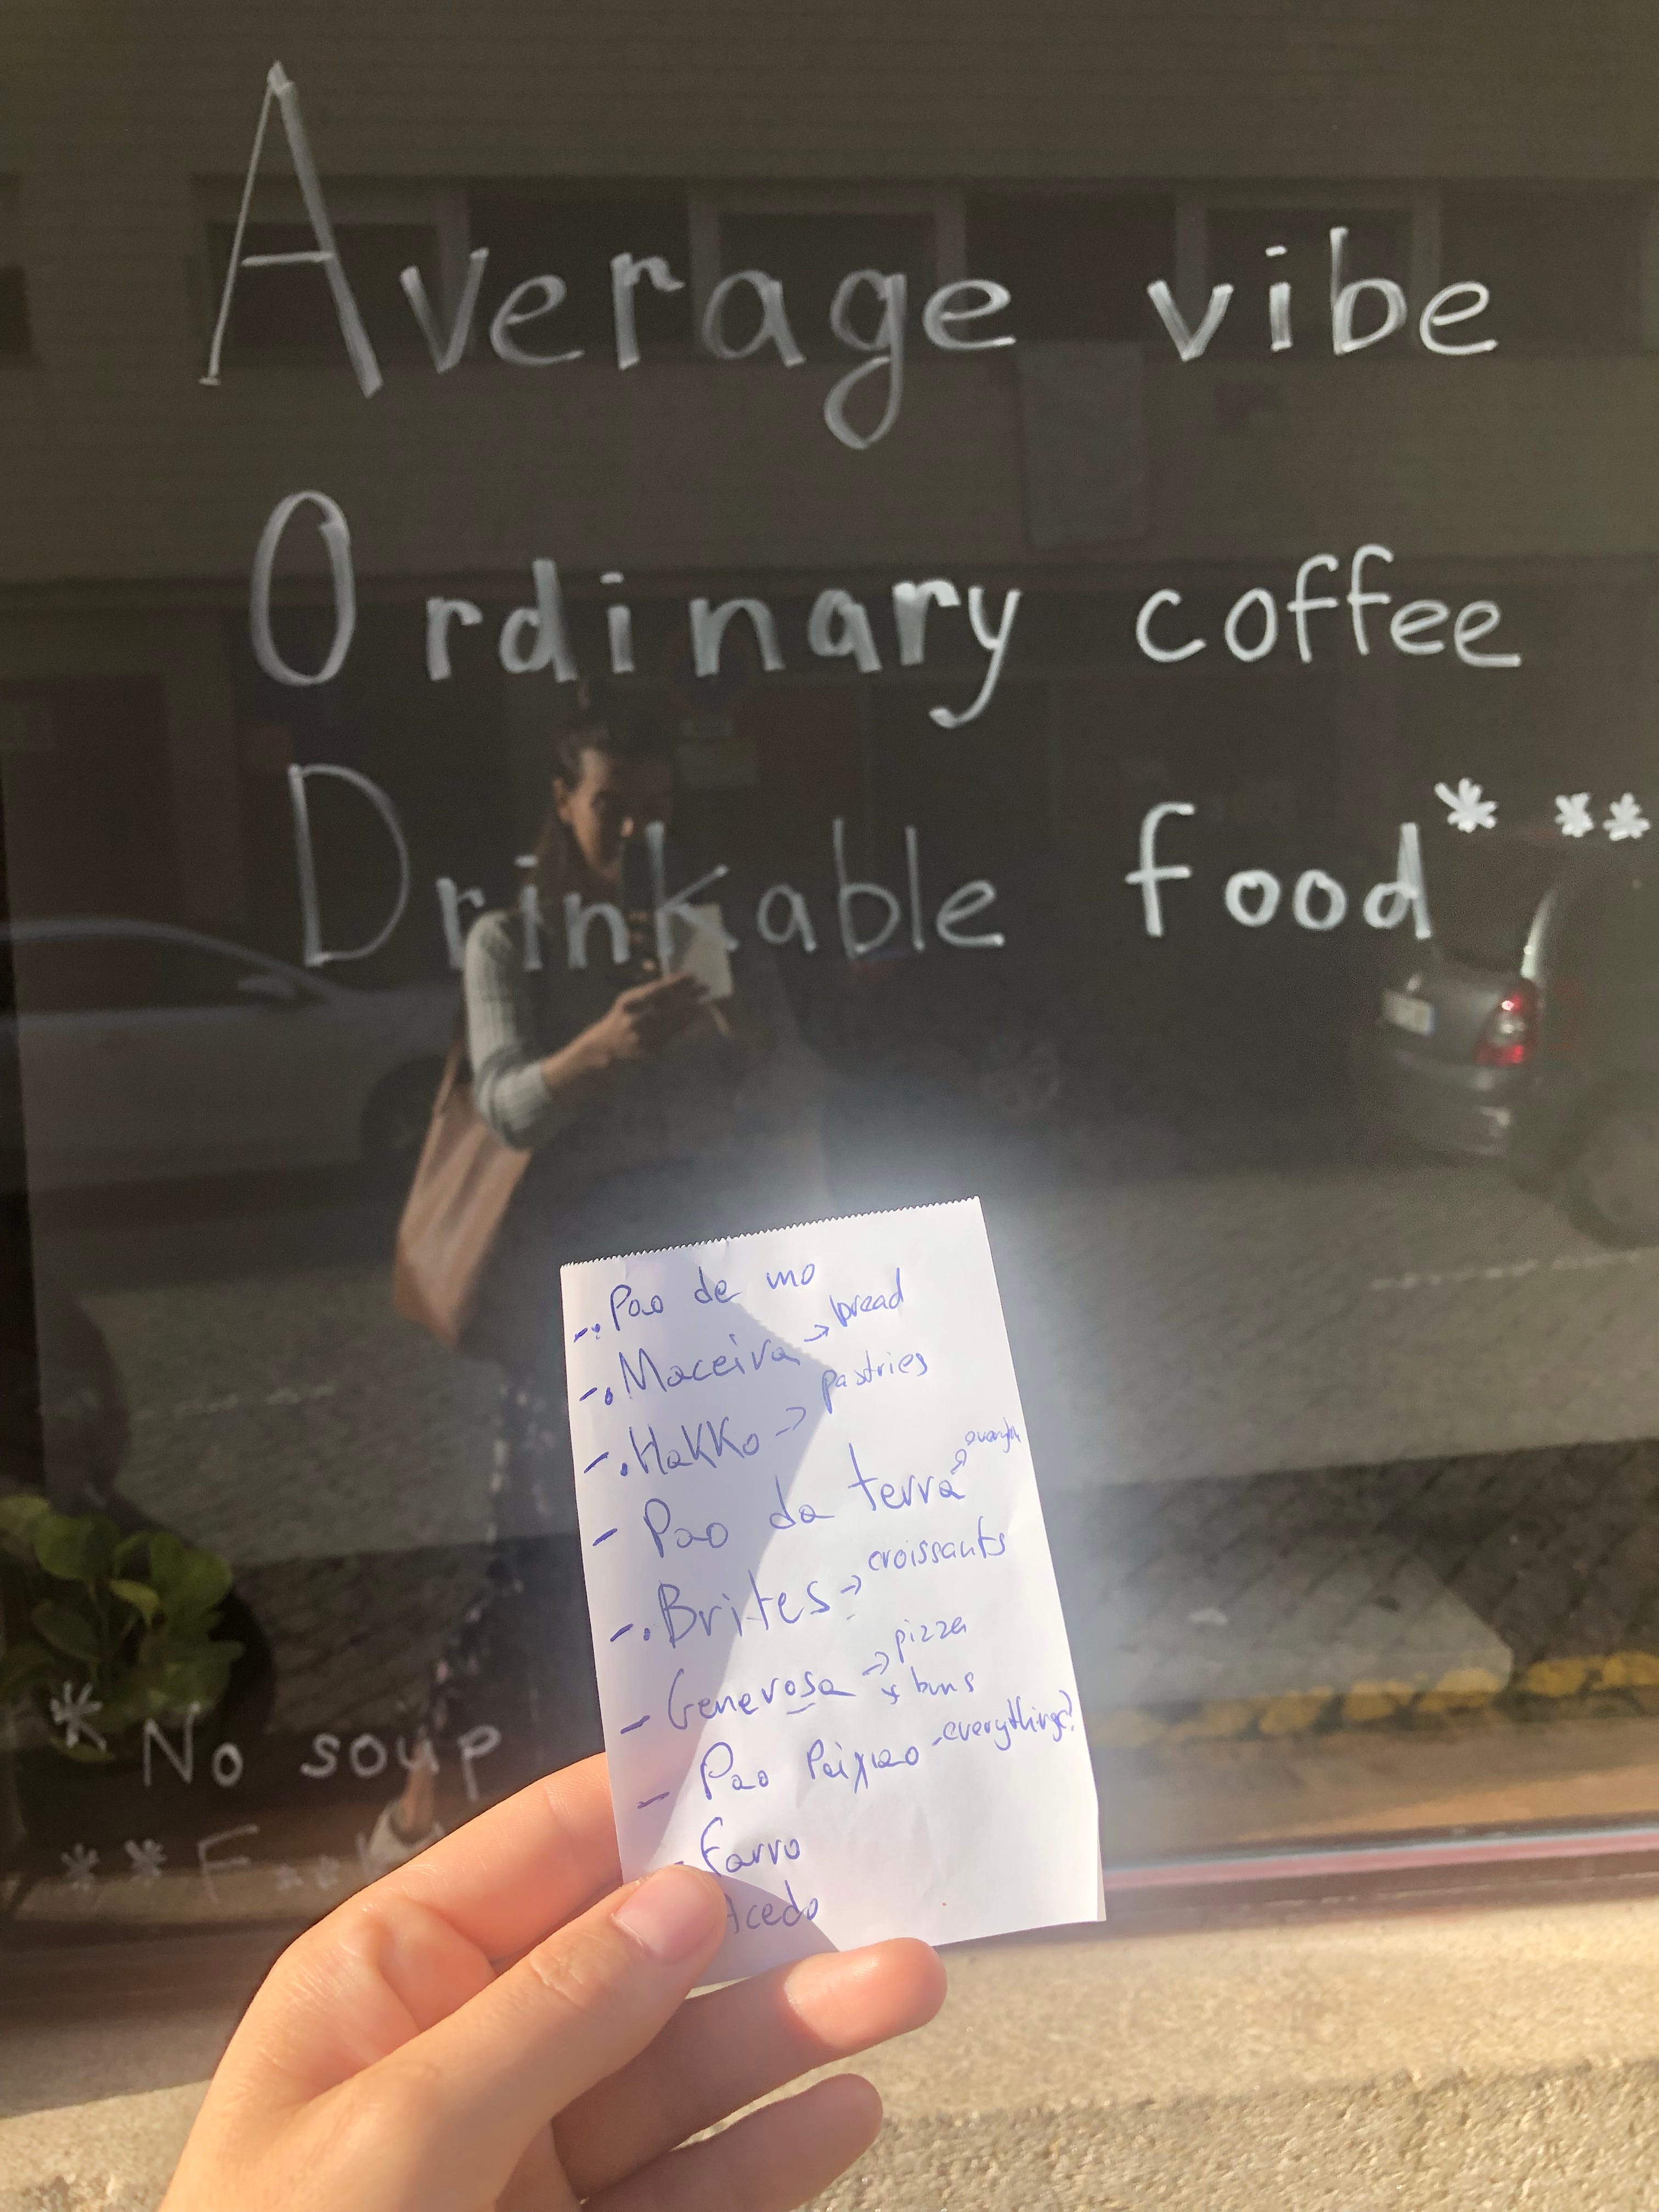 Average vibe
Ordinary coffee
Drinkable food* **
* No soup
** F
- . Pao de mo
- . Maceira → bread
- . Hakko → pastries
- Pao da terra →
- . Brites → croissants
- Generosa → pizza
buns
- Pao Paixao - everything?
- Farro
Acedo